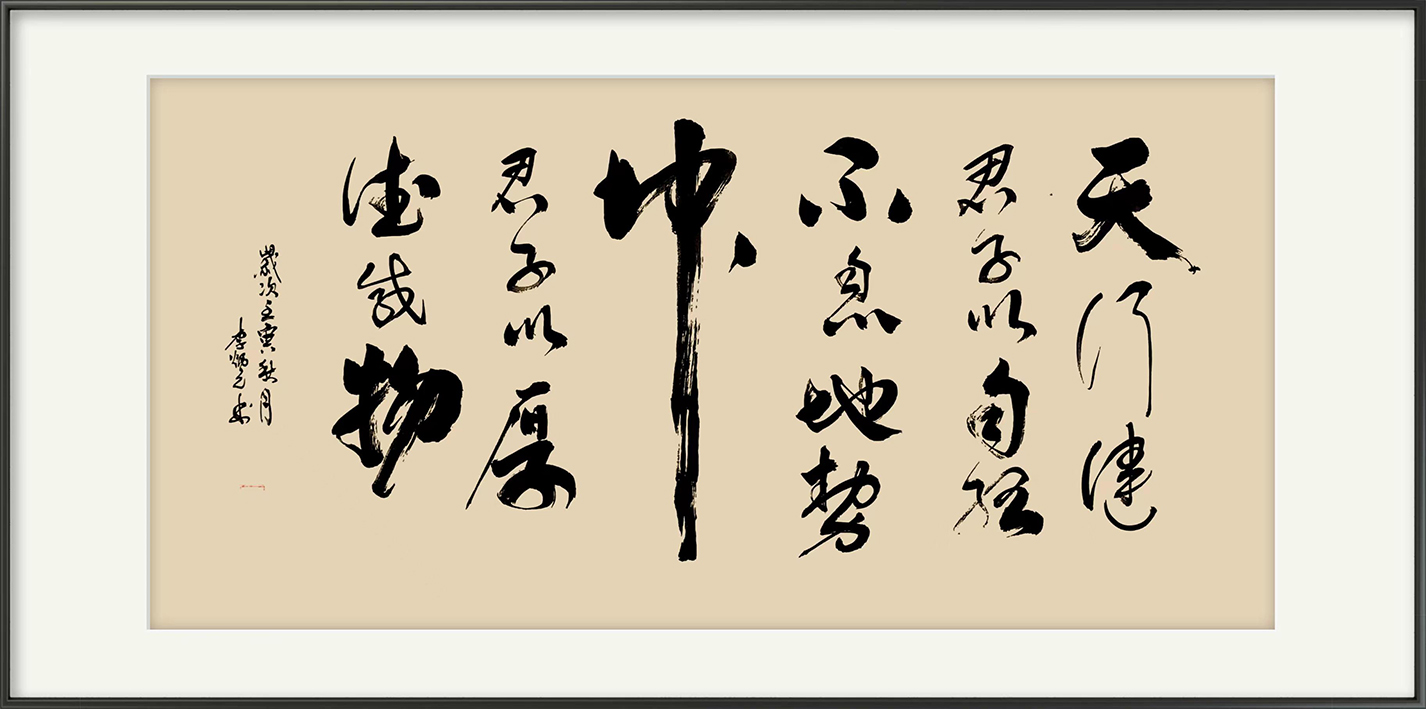 天行健
君子以自强
不息地势
坤
君子以厚
德载物
岁次壬寅秋月
李炳元书